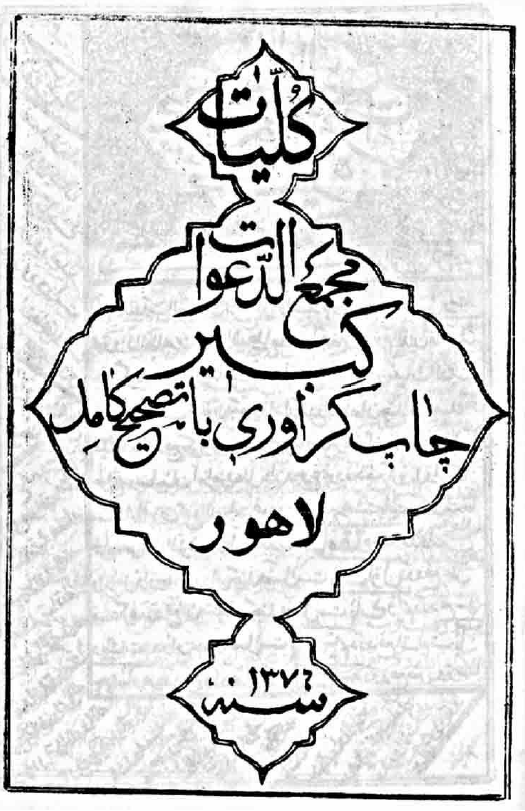 كُلّيّات
مجمع الدّعوات
كبير
چاپ گراوری با تصحیح کامل
لاهور
۱۳۷۶
سنه